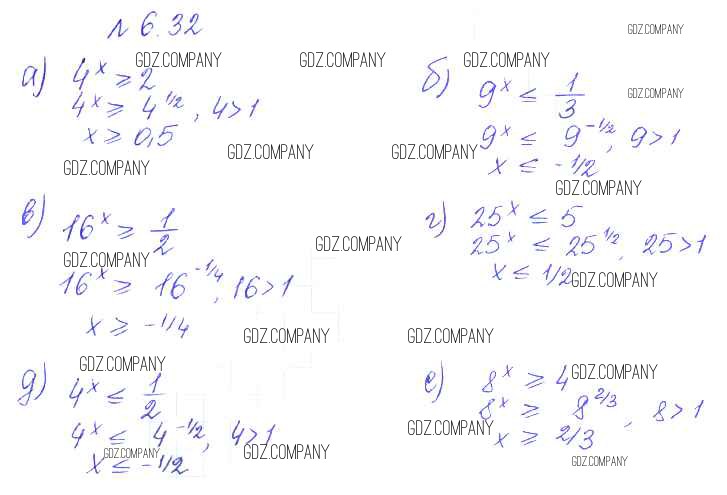 № 6.32
GDZ.COMPANY
GDZ.COMPANY GDZ.COMPANY GDZ.COMPANY
а) 4^x ≥ 2
4^x ≥ 4^{1/2}, 4>1
x ≥ 0,5
б) 9^x ≤ 1/3
GDZ.COMPANY
9^x ≤ 9^{-1/2}, 9>1
x ≤ -1/2
GDZ.COMPANY GDZ.COMPANY
GDZ.COMPANY
GDZ.COMPANY
в) 16^x ≥ 1/2
GDZ.COMPANY
16^x ≥ 16^{-1/4}, 16>1
x ≥ -1/4
г) 25^x ≤ 5
GDZ.COMPANY
25^x ≤ 25^{1/2}, 25>1
x ≤ 1/2
GDZ.COMPANY
GDZ.COMPANY GDZ.COMPANY
GDZ.COMPANY
д) 4^x ≤ 1/2
4^x ≤ 4^{-1/2}, 4>1
GDZ.COMPANY GDZ.COMPANY
x ≤ -1/2
е) 8^x ≥ 4
GDZ.COMPANY
8^x ≥ 8^{2/3}, 8>1
GDZ.COMPANY
x ≥ 2/3
GDZ.COMPANY